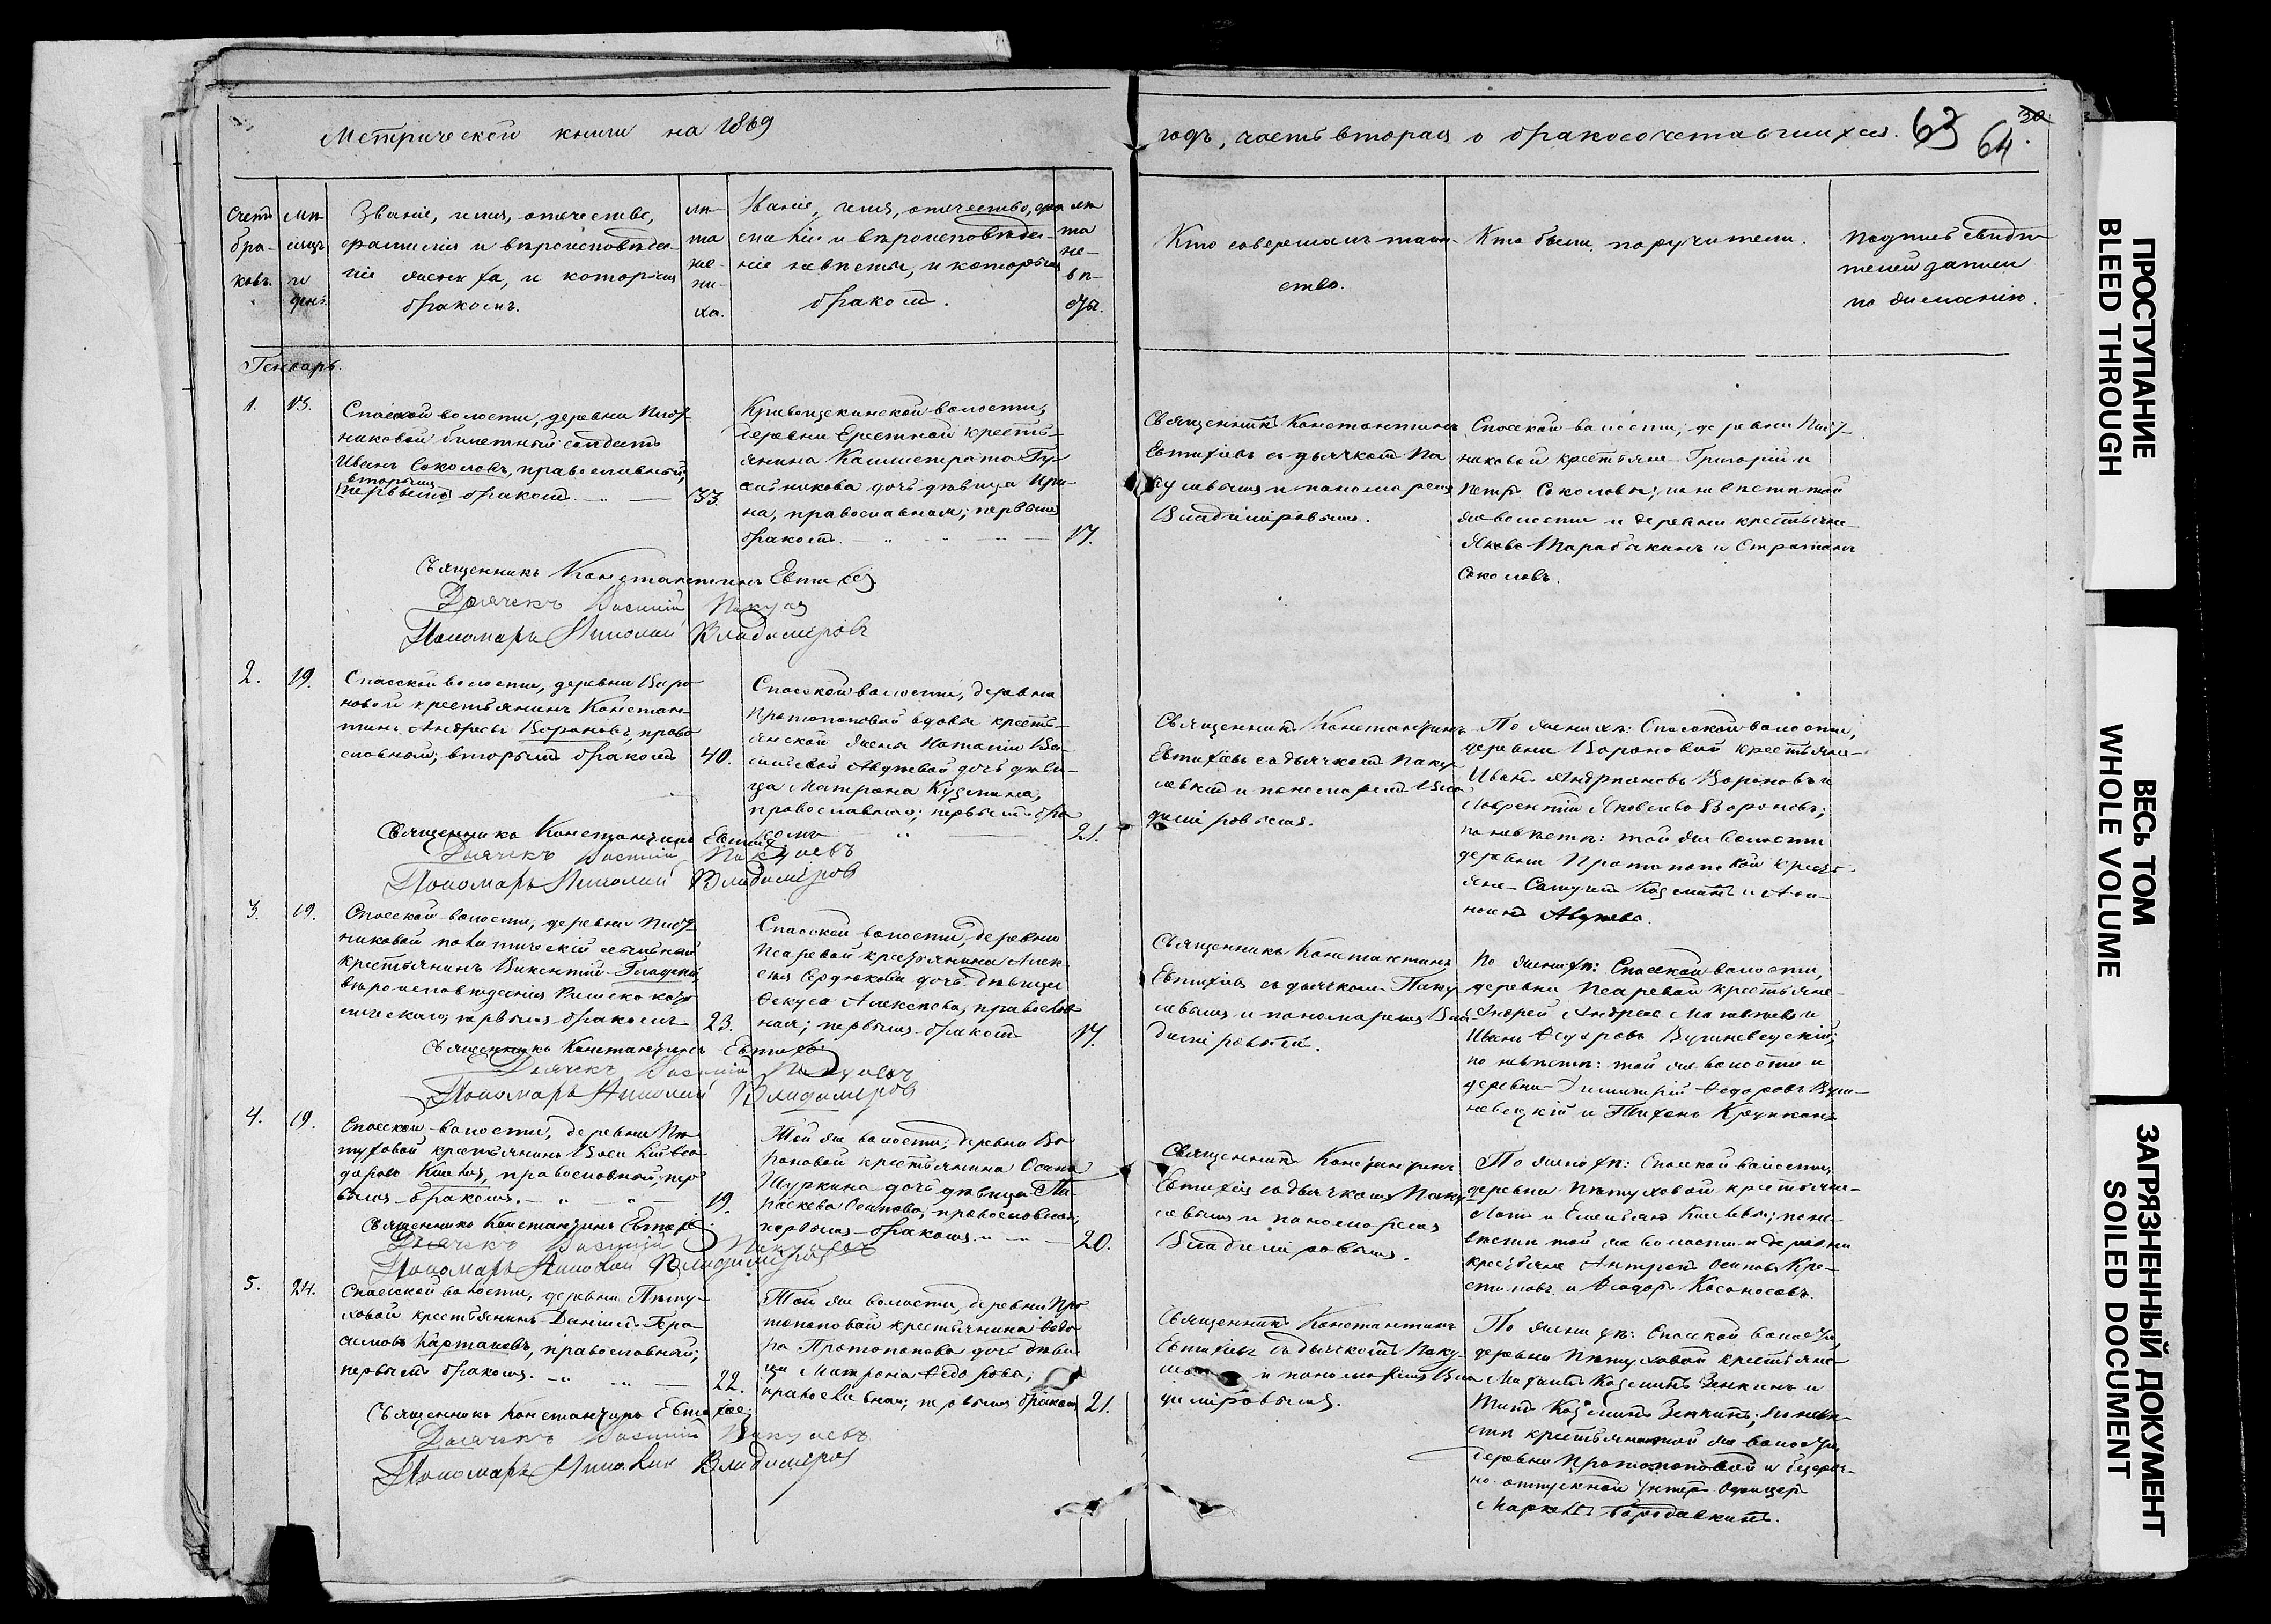 Метрической книги на 1869
годъ, часть вторая о бракосочетавшихся. 63 64. 30
Счетъ браковъ.
Мѣсяцъ и день.
Званіе, имя, отечество,
фамилія и вѣроисповѣда-
ніе жениха, и которымъ
бракомъ.
Лѣта жениха.
Званіе, имя, отечество, фа-
милія и вѣроисповѣда-
ніе невѣсты, и которымъ
бракомъ.
Лѣта невѣсты.
Кто совершалъ таин-
ство.
Кто были поручители.
Подпись свидѣ-
телей записи
по желанію.
Генварь.
1. 13.
Спасской волости, деревни
никовой билетный солдатъ
Иванъ Соколовъ, православный,
вторымъ
первымъ бракомъ. 33.
Кривощекинской волости,
деревни Ерестной кресть-
янина Каллистрата
дочь дѣвица Ири-
на, православная; первымъ
бракомъ. 17.
Священникъ Константинъ
Евтихіевъ съ дьячкомъ Па
кулевымъ и пономаремъ
Владиміровымъ.
Спасской волости, деревни
никовой крестьяне Григорій и
Петръ Соколовы; по невѣстѣ той
же волости и деревни крестьяне
Яковъ Тарабыкинъ и
Соколовъ.
Священникъ Константинъ Евтихіев
Дьячекъ Василий
Пономарь Николай Владиміровъ
2. 19.
Спасской волости, деревни Воро
новой крестьянинъ Констан-
тинъ Андреевъ Вороновъ, право
славный; вторымъ бракомъ 40.
Спасской волости, деревни
Протопоповой вдовы кресть-
янской жены Наталіи Ва-
сильевой дочь дѣви-
ца Матрона Кузмина,
православная; первымъ бра
комъ 21.
Священникъ Константинъ
Евтихіевъ съ дьячкомъ Паку
левымъ и пономаремъ Вла
диміровымъ.
По женихѣ: Спасской волости,
деревни Вороновой крестьяне
Иванъ Андріановъ Вороновъ и
Лаврентій Яковлевъ Вороновъ;
по невѣстѣ: той же волости
деревни крестья
яне
Священникъ Константинъ Евтихіев
Дьячекъ Василий Пакулевъ
Пономарь Николай Владиміров
3. 19.
Спасской волости, деревни
никовой политическій ссыльный
крестьянинъ Викентій
вѣроисповѣданія Римско като
лическаго; первымъ бракомъ 23.
Спасской волости, деревни
Псаревой крестьянина Алек-
сѣя Сердюкова дочь дѣвица
Ѳекуса Алексѣева, православ
ная; первымъ бракомъ 17.
Священникъ Константинъ
Евтихіевъ съ дьячкомъ Паку
левымъ и пономаремъ Вла
диміровымъ.
По женихѣ: Спасской волости,
деревни Псаревой крестьяне
Андрей Андреевъ и
Иванъ Ѳедоровъ
по невѣстѣ: той же волости и
деревни Димитрій Ѳедоровъ
и Тихонъ
Священникъ Константинъ Евтихіев
Дьячекъ Василий Пакулевъ
Пономарь Николай Владиміров
4. 19.
Спасской волости, деревни Пѣ
туховой крестьянинъ
православный; пер
вымъ бракомъ. 19.
Той же волости, деревни Во
роновой крестьянина Осипа
Шуркина дочь дѣвица Па-
раскева Осипова, православная;
первымъ бракомъ. 20.
Священникъ Константинъ
Евтихіевъ съ дьячкомъ Паку
левымъ и пономаремъ
Владиміровымъ.
По женихѣ: Спасской волости,
деревни Пѣтуховой крестьяне
по не-
вѣстѣ той же волости и деревни
крестьяне Осиповъ
и Ѳеодоръ Косоносовъ.
Священникъ Константинъ Евтихіев
Дьячекъ Василий Пакулевъ
Пономарь Николай Владиміров
5. 24.
Спасской волости, деревни Пѣту-
ховой крестьянинъ Даніилъ Гера
симовъ Карташевъ, православный;
первымъ бракомъ. 22.
Той же волости, деревни Про
топоповой крестьянина Ѳедо
ра Протопопова дочь дѣви
ца Матрона Ѳедорова,
православная; первымъ бракомъ 21.
Священникъ Константинъ
Евтихіевъ съ дьячкомъ Паку-
и пономаремъ Вла
диміровымъ.
По женихѣ: Спасской волости,
деревни Пѣтуховой крестьяне
Михаилъ Козминъ Зенкинъ и
Титъ Козминъ Зенкинъ; по невѣ-
стѣ крестьянинъ той же волости
деревни Протопоповой и безсроч-
но отпускной унтеръ офицеръ
Маркелъ Бородавкинъ.
Священникъ Константинъ Евтихіев
Дьячекъ Василий Пакулевъ
Пономарь Николай Владиміров
ПРОСТУПАНИЕ
BLEED THROUGH
ВЕСЬ ТОМ
WHOLE VOLUME
ЗАГРЯЗНЕННЫЙ ДОКУМЕНТ
SOILED DOCUMENT